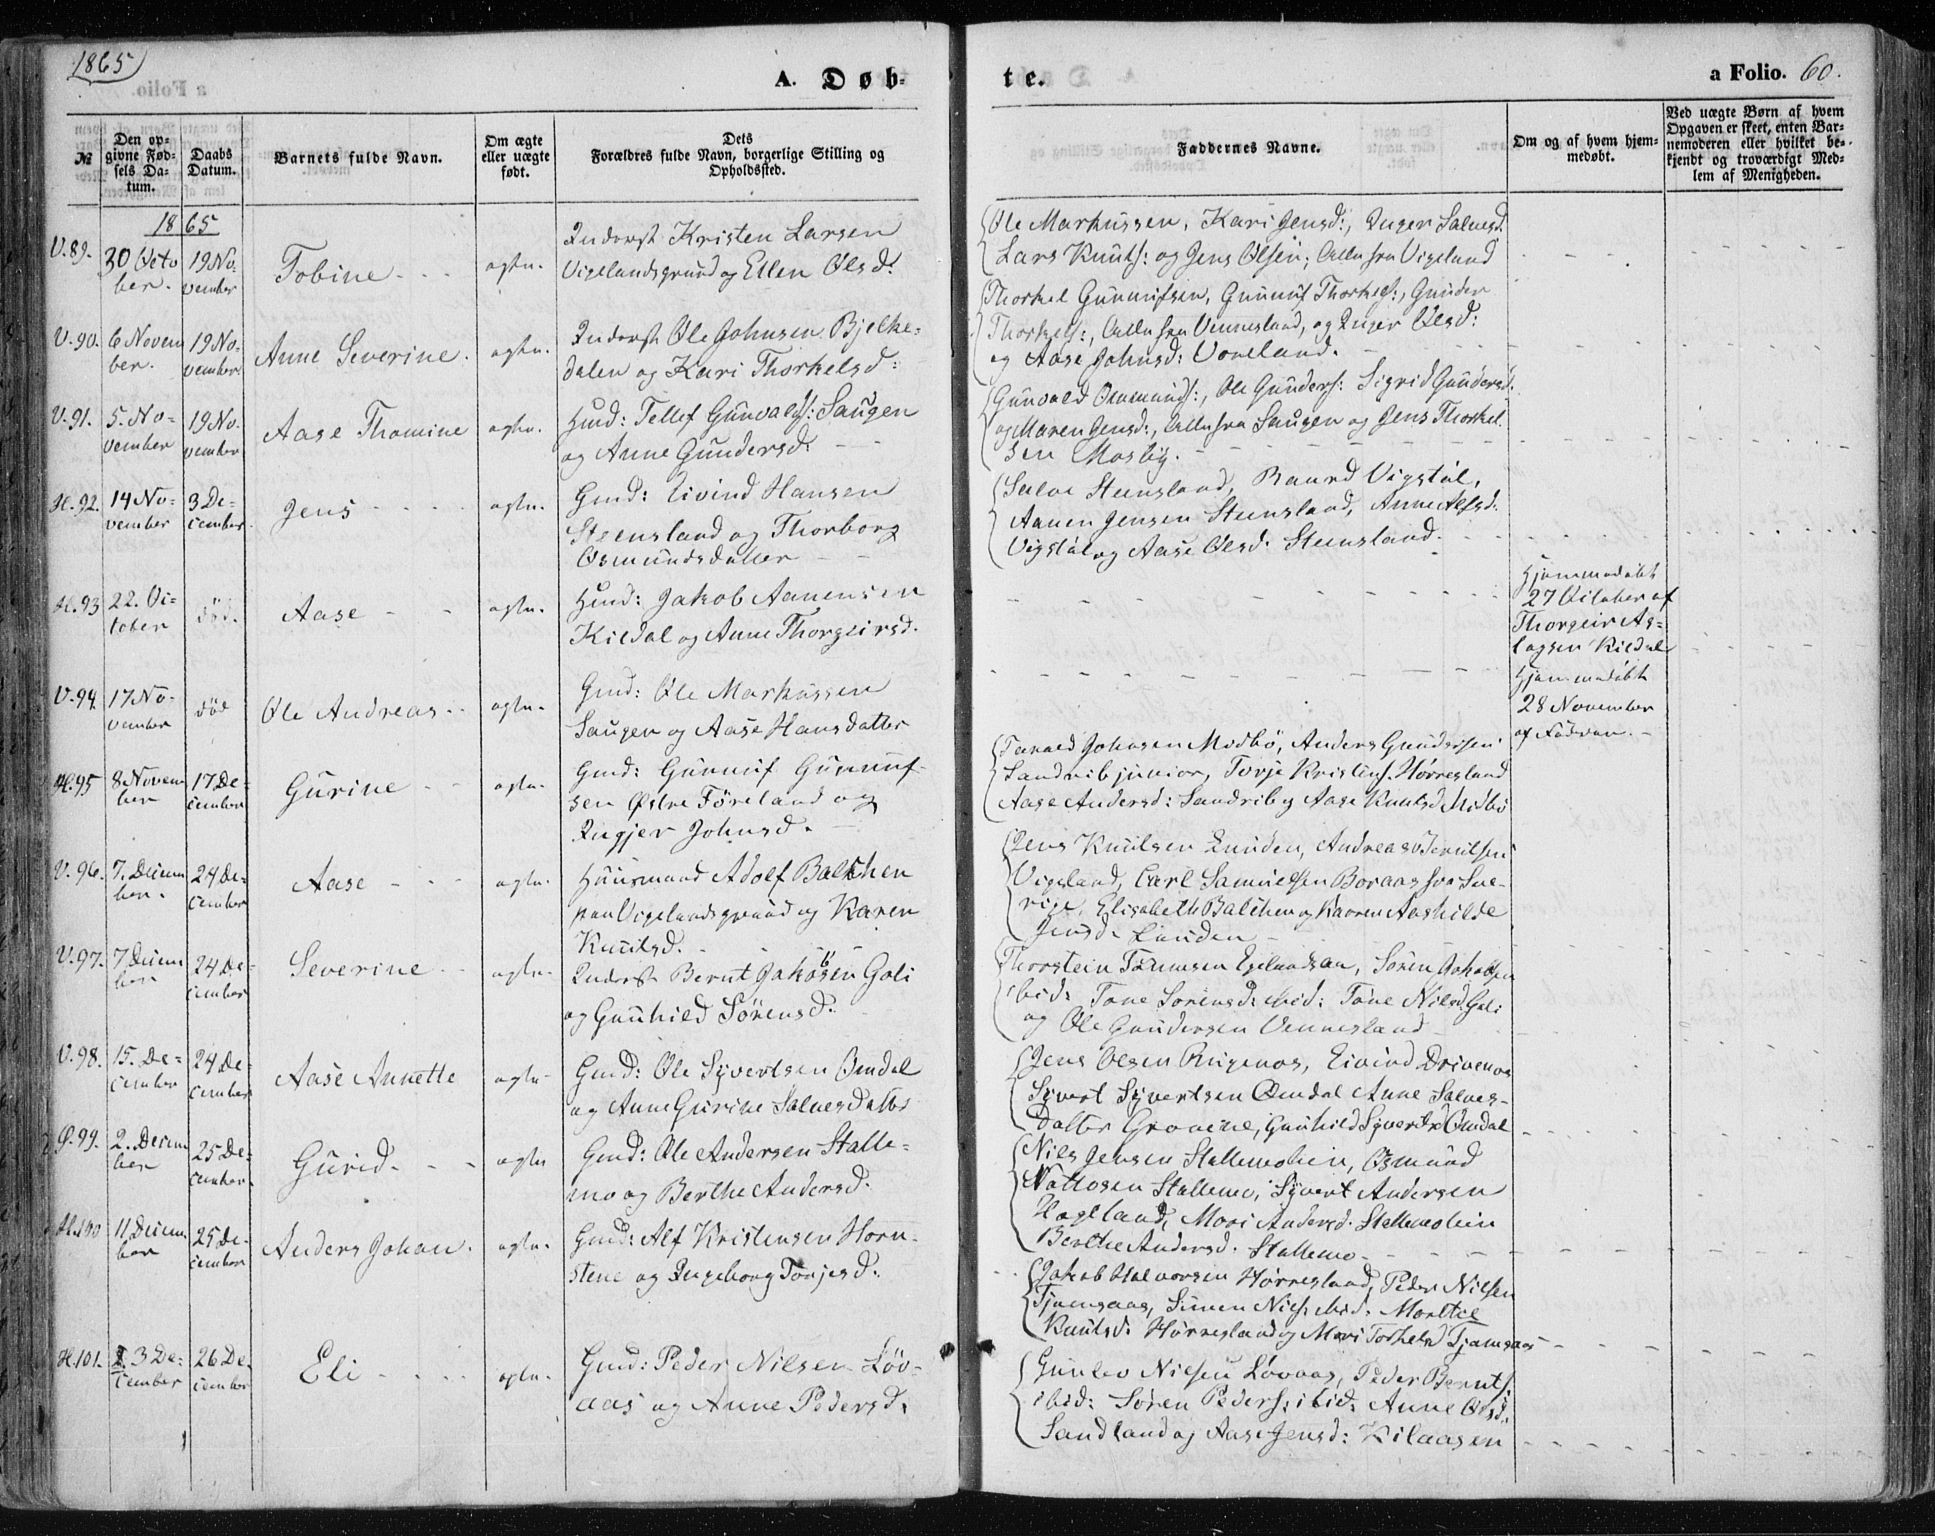 1865
A. Døb-
te.
a Folio. 60.
№
Den op-
givne Fød-
sels Da-
tum.
Daabs
Datum.
Barnets fulde Navn.
Om ægte
eller uægte
født.
Dets
Forældres fulde Navn, borgerlige Stilling og
Opholdssted.
Faddernes Navne.
Om og af hvem hjem-
medøbt.
Ved uægte Børn af hvem
Opgaven er skeet, enten Bar-
nemoderen eller hvilket be-
kjendt og troværdigt Med-
lem af Menigheden.
1865
V. 89.
30 Octo
ber.
19 No-
vember
Tobine
ægte.
Inderst Kristen Larsen
Vigelandsgrund og Ellen Olsd:
Ole Markussen, Kari Jensd:, Inger Salvesd.
Lars Knuts: og Jens Olsen, Alle fra Vigeland
V. 90.
6 Novem
ber.
19 No-
vember.
Anne Severine.
ægte.
Inderst Ole Johnsen Bjelke-
dalen og Kari Thorkelsd:
Thorkel Gunnufsen, Gunnuf Thorkels:, Gunder
Thorkels:, Alle fra Vennesland, og Inger Olsd:
og Aase Johnsd: Voreland.
V. 91.
5. No-
vember
19 No-
vember
Aase Thomine
ægte.
Huud: Tellef Gunvalds: Saugen
og Anne Gundersd.
Gunvald Omunds:, Ole Gunders: Sigrid Gundersd.
og Maren Jensd:, Alle fra Saugen og Jens Thorkel
sen Mosby.
H. 92.
14 No-
vember
3 De-
cember.
Jens
ægte.
Gmd: Eivind Hansen
Steensland og Thorborg
Osmundsdatter
Salve Steensland, Baard Vigstøl,
Aanen Jensen Steensland, Anne Alfsd.
Vigstøl og Aase Olsd. Steensland.
H. 93
22. Oc-
tober
død.
Aase
ægte.
Huud: Jakob Aanensen
Kildal og Anne Thorgeirsd.
Hjemmedøbt
27 October af
Thorgeir As-
lagsen Kildal
V. 94.
17. No-
vember
død
Ole Andreas
ægte.
Gmd: Ole Markussen
Saugen og Aase Hansdatter
Hjemmedøbt
28 November
af Faderen.
H. 95
8 Novem
ber
17 De-
cember
Gurine
ægte.
Gmd: Gunnuf Gunnuf-
sen Østre Føreland og
Ingjer Johnsd.
Tarald Johnsen Midbø, Anders Gundersen
Sandrib junior, Torje Kristens. Hørresland
Aase Andersd: Sandrib og Aase Knutsd Midbø
V. 96.
7. Decem
ber.
24 De-
cember
Aase
ægte.
Huusmand Adolf Balchen
paa Vigelandsgrund og Karen
Knutsd.
Jens Knutsen Lunden, Andreas Berntsen
Vigeland, Carl Samuelsen Boraas fra Sve-
rige, Elisabeth Balchen og Karen Aashilde
Jensd. Lunden
V. 97.
7 Decem
ber
24 De-
cember
Severine
ægte.
Inderst Bernt Jakobsen Goli
og Gunhild Sørensd.
Thorstein Tønnesen Egelandsaa, Søren Jakobsen
ibid: Tone Sorensd: ibid: Tone Nilsd Goli
og Ole Gundersen Vennesland
V. 98.
15. De-
cember
24 De-
cember
Aase Annette
ægte
Gmd: Ole Syvertsen Omdal
og Anne Gurine Salvesdatter
Jens Olsen Rugenes, Eivind Drivenes
Syvert Syvertsen Omdal Anne Salves-
datter Grovene, Gunhild Syvertsd Omdal
Ø. 99.
2. Decem
ber
25 De-
cember.
Gurid.
ægte
Gmd: Ole Andersen Stalle-
mo og Berthe Andersd.
Nils Jensen Stallemohein, Osmund
Nottosen Stallemo, Syvert Andersen
Hageland, Mari Andersd. Stallemohein
Berthe Andersd. Stallemo
H. 100
11 Decem
ber
25 De-
cember
Anders Johan.
ægte.
Gmd: Alf Kristensen Horn-
stene og Ingeborg Torjesd.
Jakob Halvorsen Hørresland, Peder Nilsen
Tjomsaas, Simen Nils. ibid.
Knutsd. Hørresland og Mari Torkelsd Tjomsaas
H. 101.
3 De-
cember
26 De-
cember
Eli
ægte.
Gmd: Peder Nilsen Løv-
aas og Anne Pedersd.
Gunlev Nilsen Løvaas, Peder Bernts.
ibid: Søren Peders: ibid: Anne Olsd.
Sandland og Aase Jensd: Kilaasen